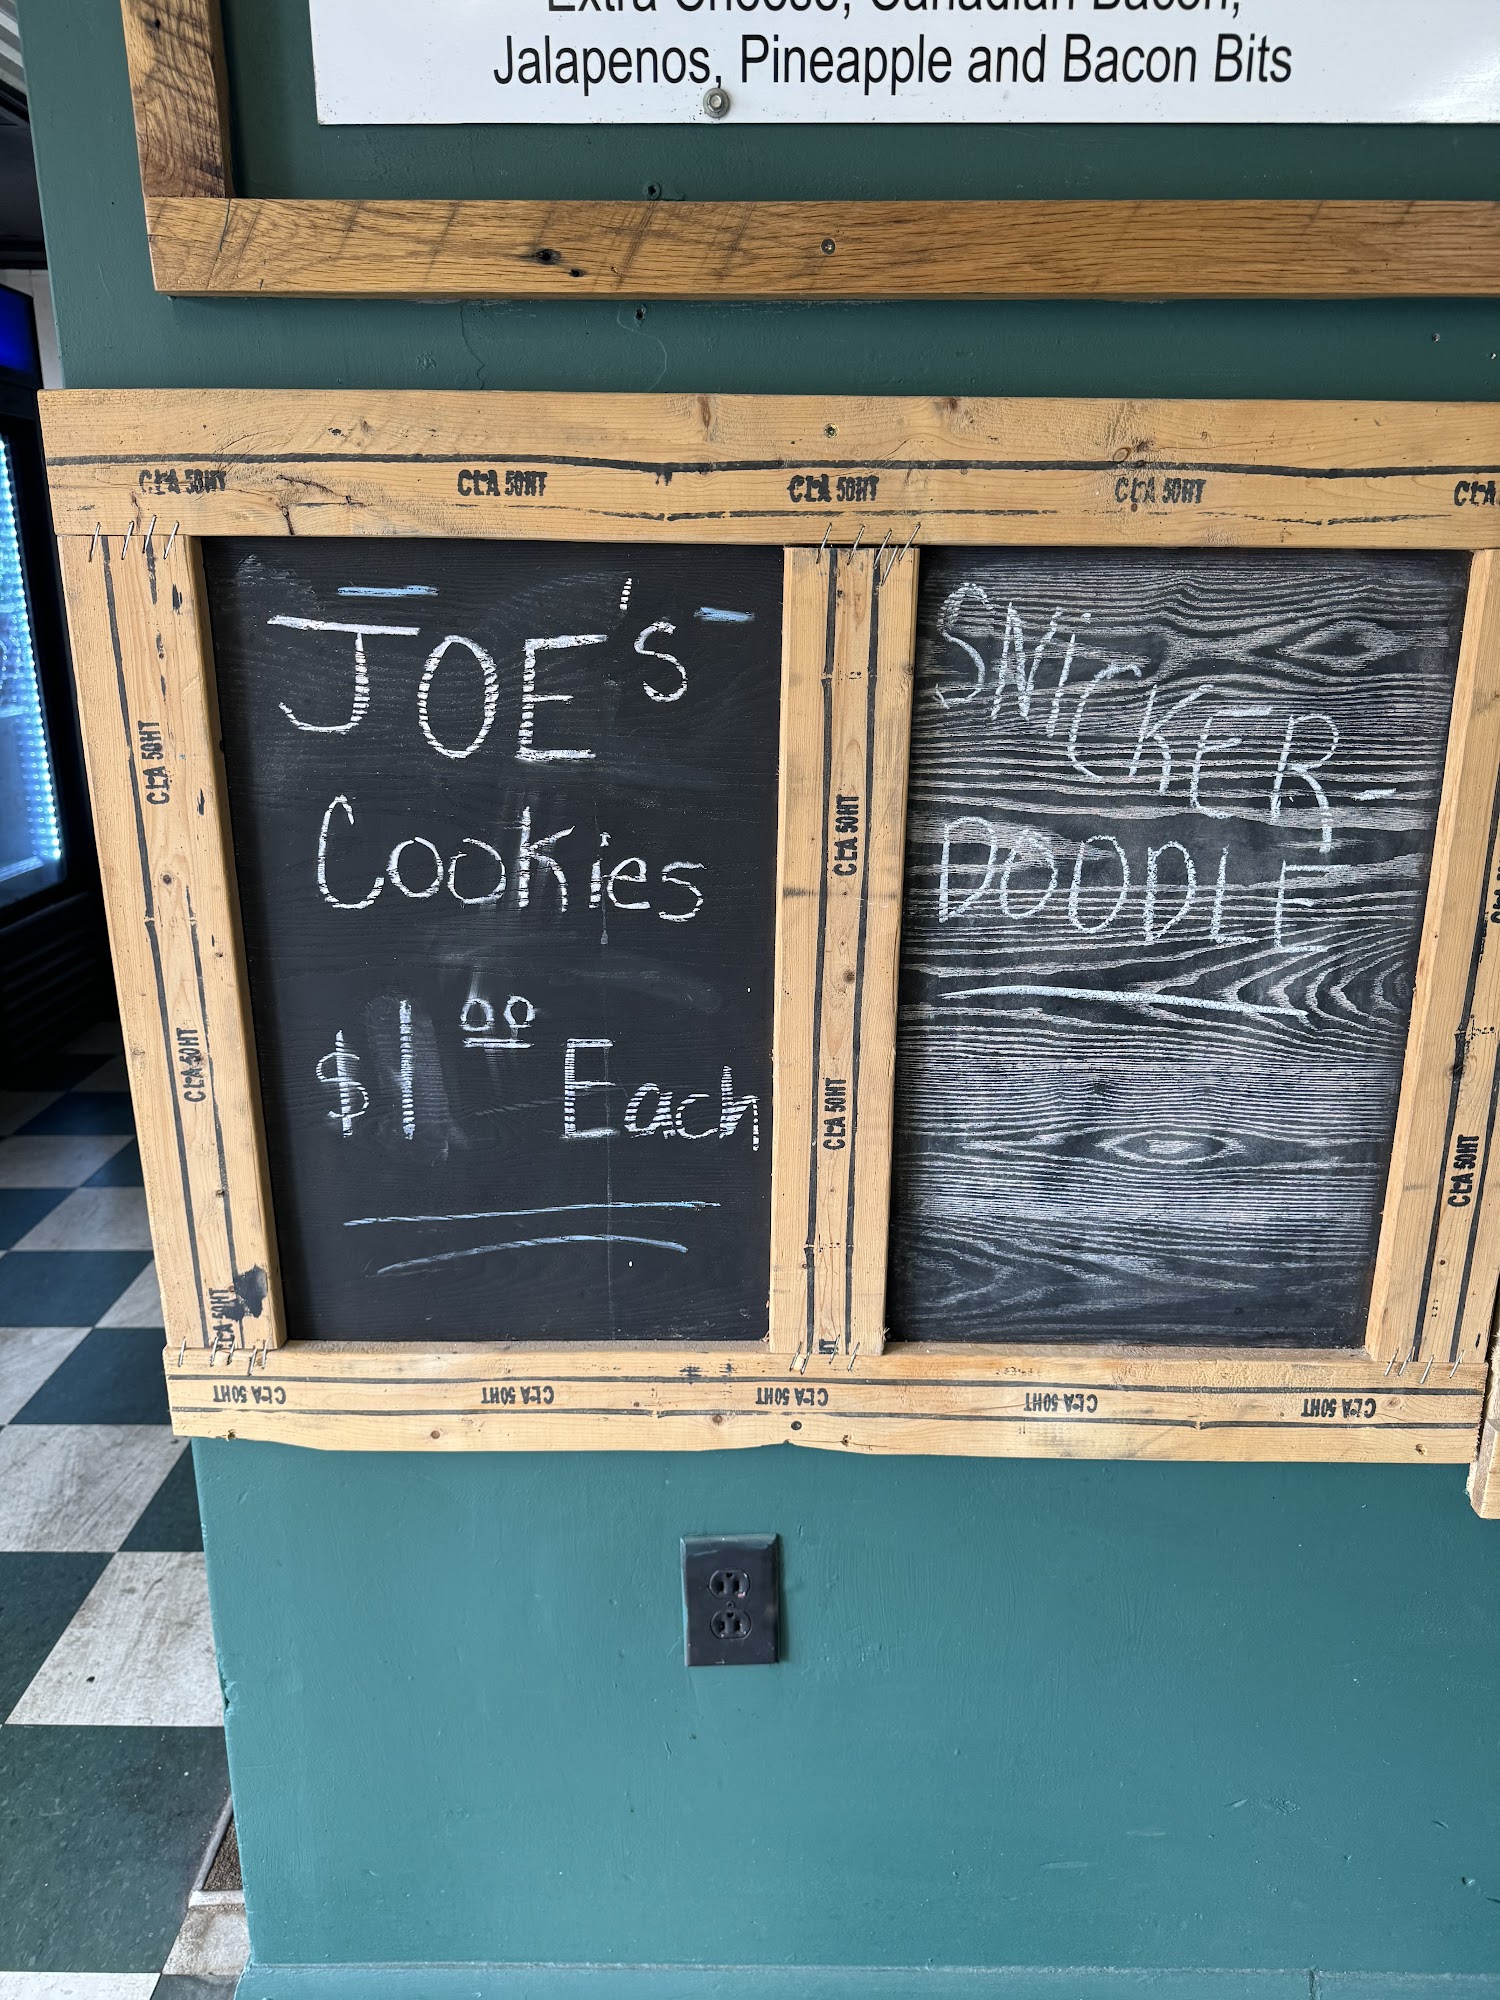 Extra Cheese, Canadian Bacon,
Jalapenos, Pineapple and Bacon Bits
CLA 50HT CLA 50HT CLA 50HT CLA 50HT CLA
JOE's
Cookies
$1 00 Each
SNICKER-
DOODLE
CLA 50HT
CLA 50HT
CLA 50HT
CLA 50HT
CLA 50HT
CLA 50HT
CLA 50HT
CLA 50HT CLA 50HT CLA 50HT CLA 50HT CLA 50HT